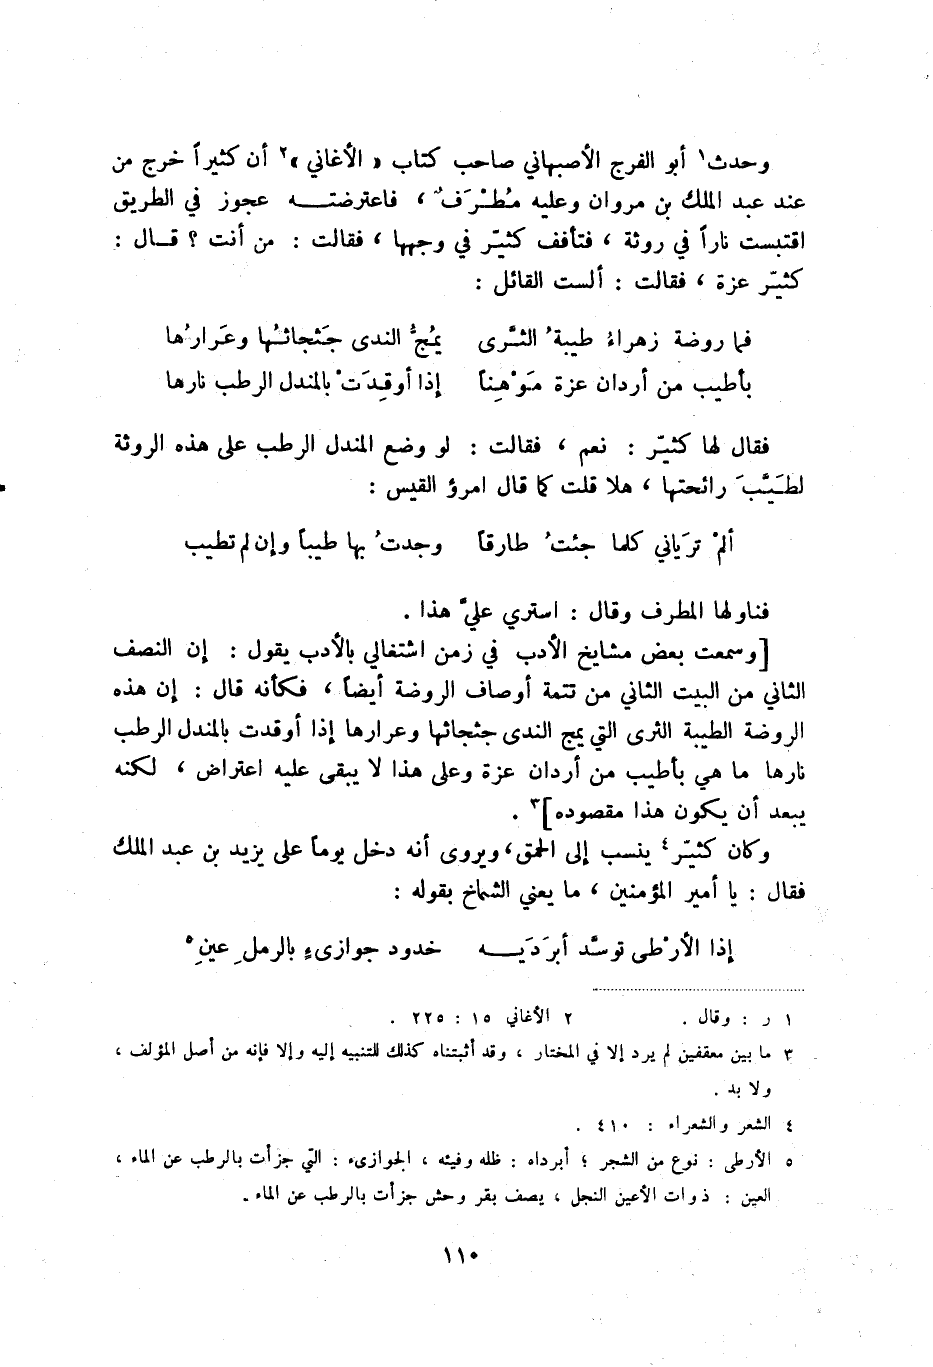 وحدث١ أبو الفرج الأصبهاني صاحب كتاب « الأغاني »٢ أن كثيراً خرج من
عند عبد الملك بن مروان وعليه مُطْرَفٌ ، فاعترضته عجوز في الطريق
اقتبست ناراً في روثة ، فتأفف كثيّر في وجهها ، فقالت : من أنت ؟ قال :
كثيّر عزة ، فقالت : ألست القائل :
فما روضة زهراءُ طيبةُ الثَّرى يمُجُّ الندى جَثجاثُها وعَرارُها
بأطيب من أردان عزة مَوْهِناً إذا أوقِدَتْ بالمندل الرطب نارها
فقال لها كثيّر : نعم ، فقالت : لو وضع المندل الرطب على هذه الروثة
لطَيَّبَ رائحتها ، هلا قلت كما قال امرؤ القيس :
ألمْ ترَياني كلما جئتُ طارقاً وجدتُ بها طيباً وإن لم تطيب
فناولها المطرف وقال : استري عليَّ هذا .
[وسمعت بعض مشايخ الأدب في زمن اشتغالي بالأدب يقول : إن النصف
الثاني من البيت الثاني من تتمة أوصاف الروضة أيضاً ، فكأنه قال : إن هذه
الروضة الطيبة الثرى التي يمج الندى جثجاثها وعرارها إذا أوقدت بالمندل الرطب
نارها ما هي بأطيب من أردان عزة وعلى هذا لا يبقى عليه اعتراض ، لكنه
يبعد أن يكون هذا مقصوده]٣ .
وكان كثيّر٤ ينسب إلى الحمق، ويروى أنه دخل يوماً على يزيد بن عبد الملك
فقال : يا أمير المؤمنين ، ما يعني الشماخ بقوله :
إذا الأرْطى توسَّد أبرَدَيه خدود جوازىءٍ بالرملِ عينِ٥
١ ر : وقال . ٢ الأغاني ١٥ : ٢٢٥ .
٣ ما بين معقفين لم يرد إلا في المختار ، وقد أثبتناه كذلك للتنبيه إليه وإلا فإنه من أصل المؤلف ،
ولا بد .
٤ الشعر والشعراء : ٤١٠ .
٥ الأرطى : نوع من الشجر ؛ أبرداه : ظله وفيئه ، الجوازىء : التي جزأت بالرطب عن الماء ،
العين : ذوات الأعين النجل ، يصف بقر وحش جزأت بالرطب عن الماء .
١١٠